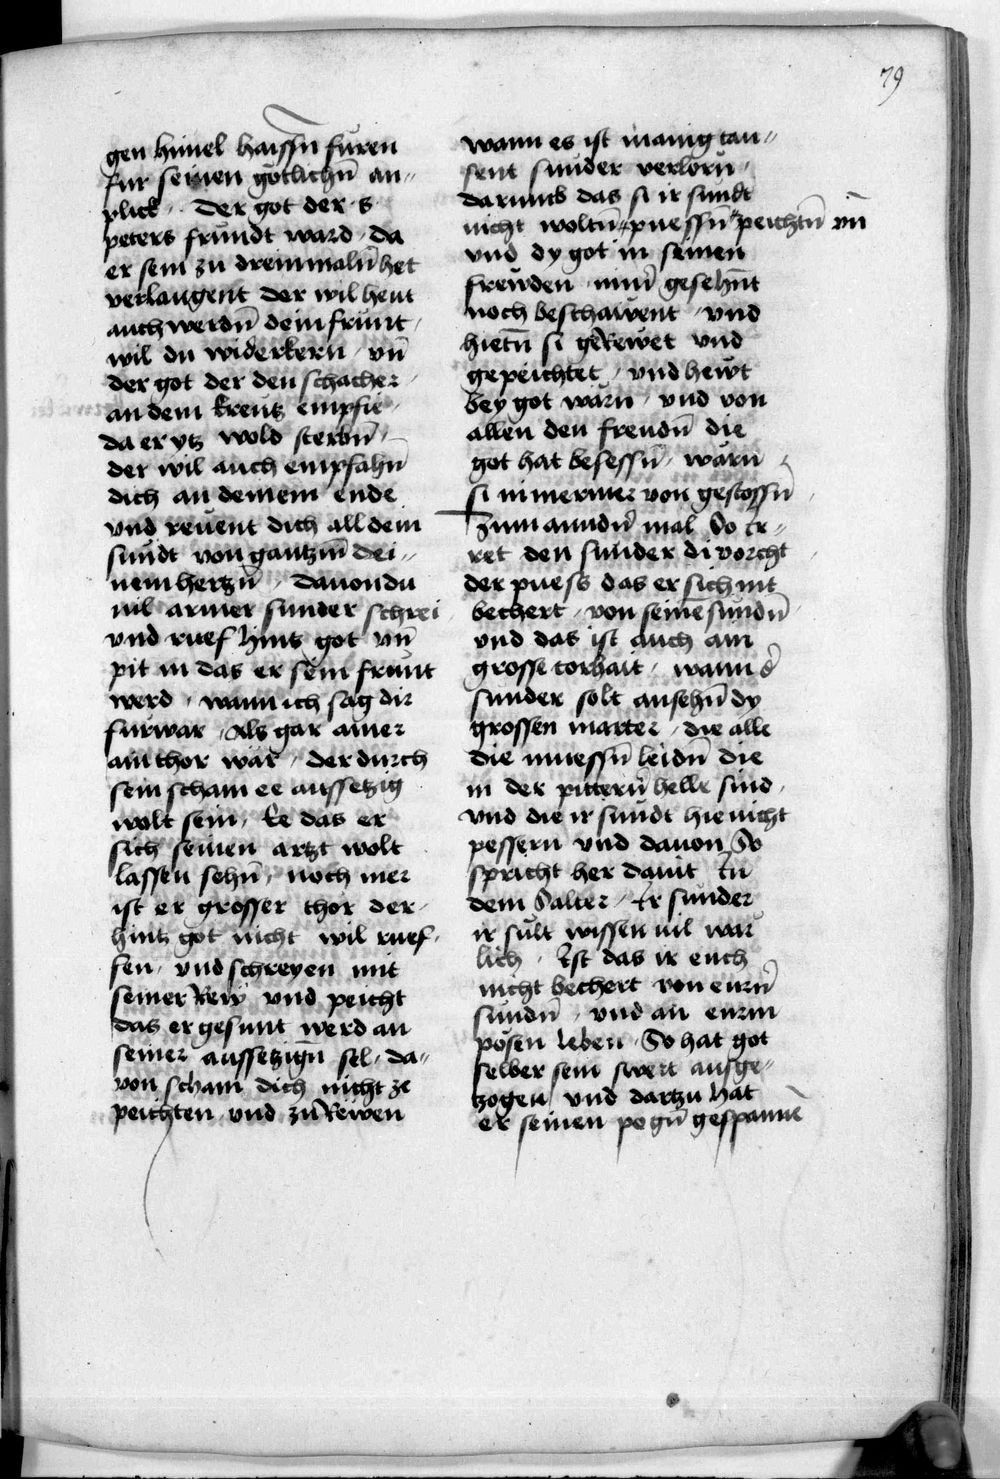 79
gen himel haissn̄ furen
fur seinen gotlichn̄ an„
plick. Der got der s
peters frundt ward, da
er sein zu dreinmaln̄ het
verlaugent der wil heut
auch werdn̄ dein frunt,
wil du widerkern, vn̄
der got der den schacher,
an dem kreutz empfie,
da er ytz wold sterbn̄,
der wil auch empfahn̄
dich an deinem ende
vnd reuent dich all dein
sundt von gantzm̄ dei„
nem hertzn̄, dauon du
vil armer sunder schrei
vnd ruef hintz got vn̄
pit in das er sein frunt
werd, wann ich sag dir
furwar, Als gar ainer
ain thor wär, der durch
sein scham ee aussetzig
wolt sein, Ee das er
sich seinen artzt wolt
lassen sehn̄, noch mer
ist er grosser thor der,
hintz got nicht wil ruef,
fen, vnd schreyen mit
seiner Rew vnd peicht
das er gesunt werd an
seiner aussetzign̄ sel, da„
von scham dich nicht ze
peichten, vnd zu Rewen
wann es ist manig tau„
sent sunder verlorn,
darumb das si ir sundt
nicht woltn̄ puessn̄ peichtn̄ vn̄
vnd dy got in seinen
frewden nīmer gesehn̄t
noch beschawent, vnd
hietn̄ si geRewet vnd
gepeichtet, vnd hewt
bey got wärn, vnd von
allen den freudn̄ die
got hat besessn̄, wärn
si nimermer von gestossn̄
Zum anndn̄ mal So ir„
ret den sunder di vorcht
der puess das er sich nit
bechert, von seinē sundn̄
vnd das ist auch ain
grosse torhait, wann d̄
sunder solt ansehn̄ dy
grossen marter, die alle
die muessn̄ leidn̄ die
in der pittern̄ helle sind,
vnd die ir sundt hie nicht
pessern vnd dauon So
spricht her dauit In
dem Salter, Ir sunder
ir sult wissen vil war
lich, Ist das ir euch
nicht bechert von eurn̄
sundn̄, vnd an eurm
posen leben, So hat got
selber sein swert ausge„
zogen vnd dartzu hat
er seinen pogn̄ gespannē